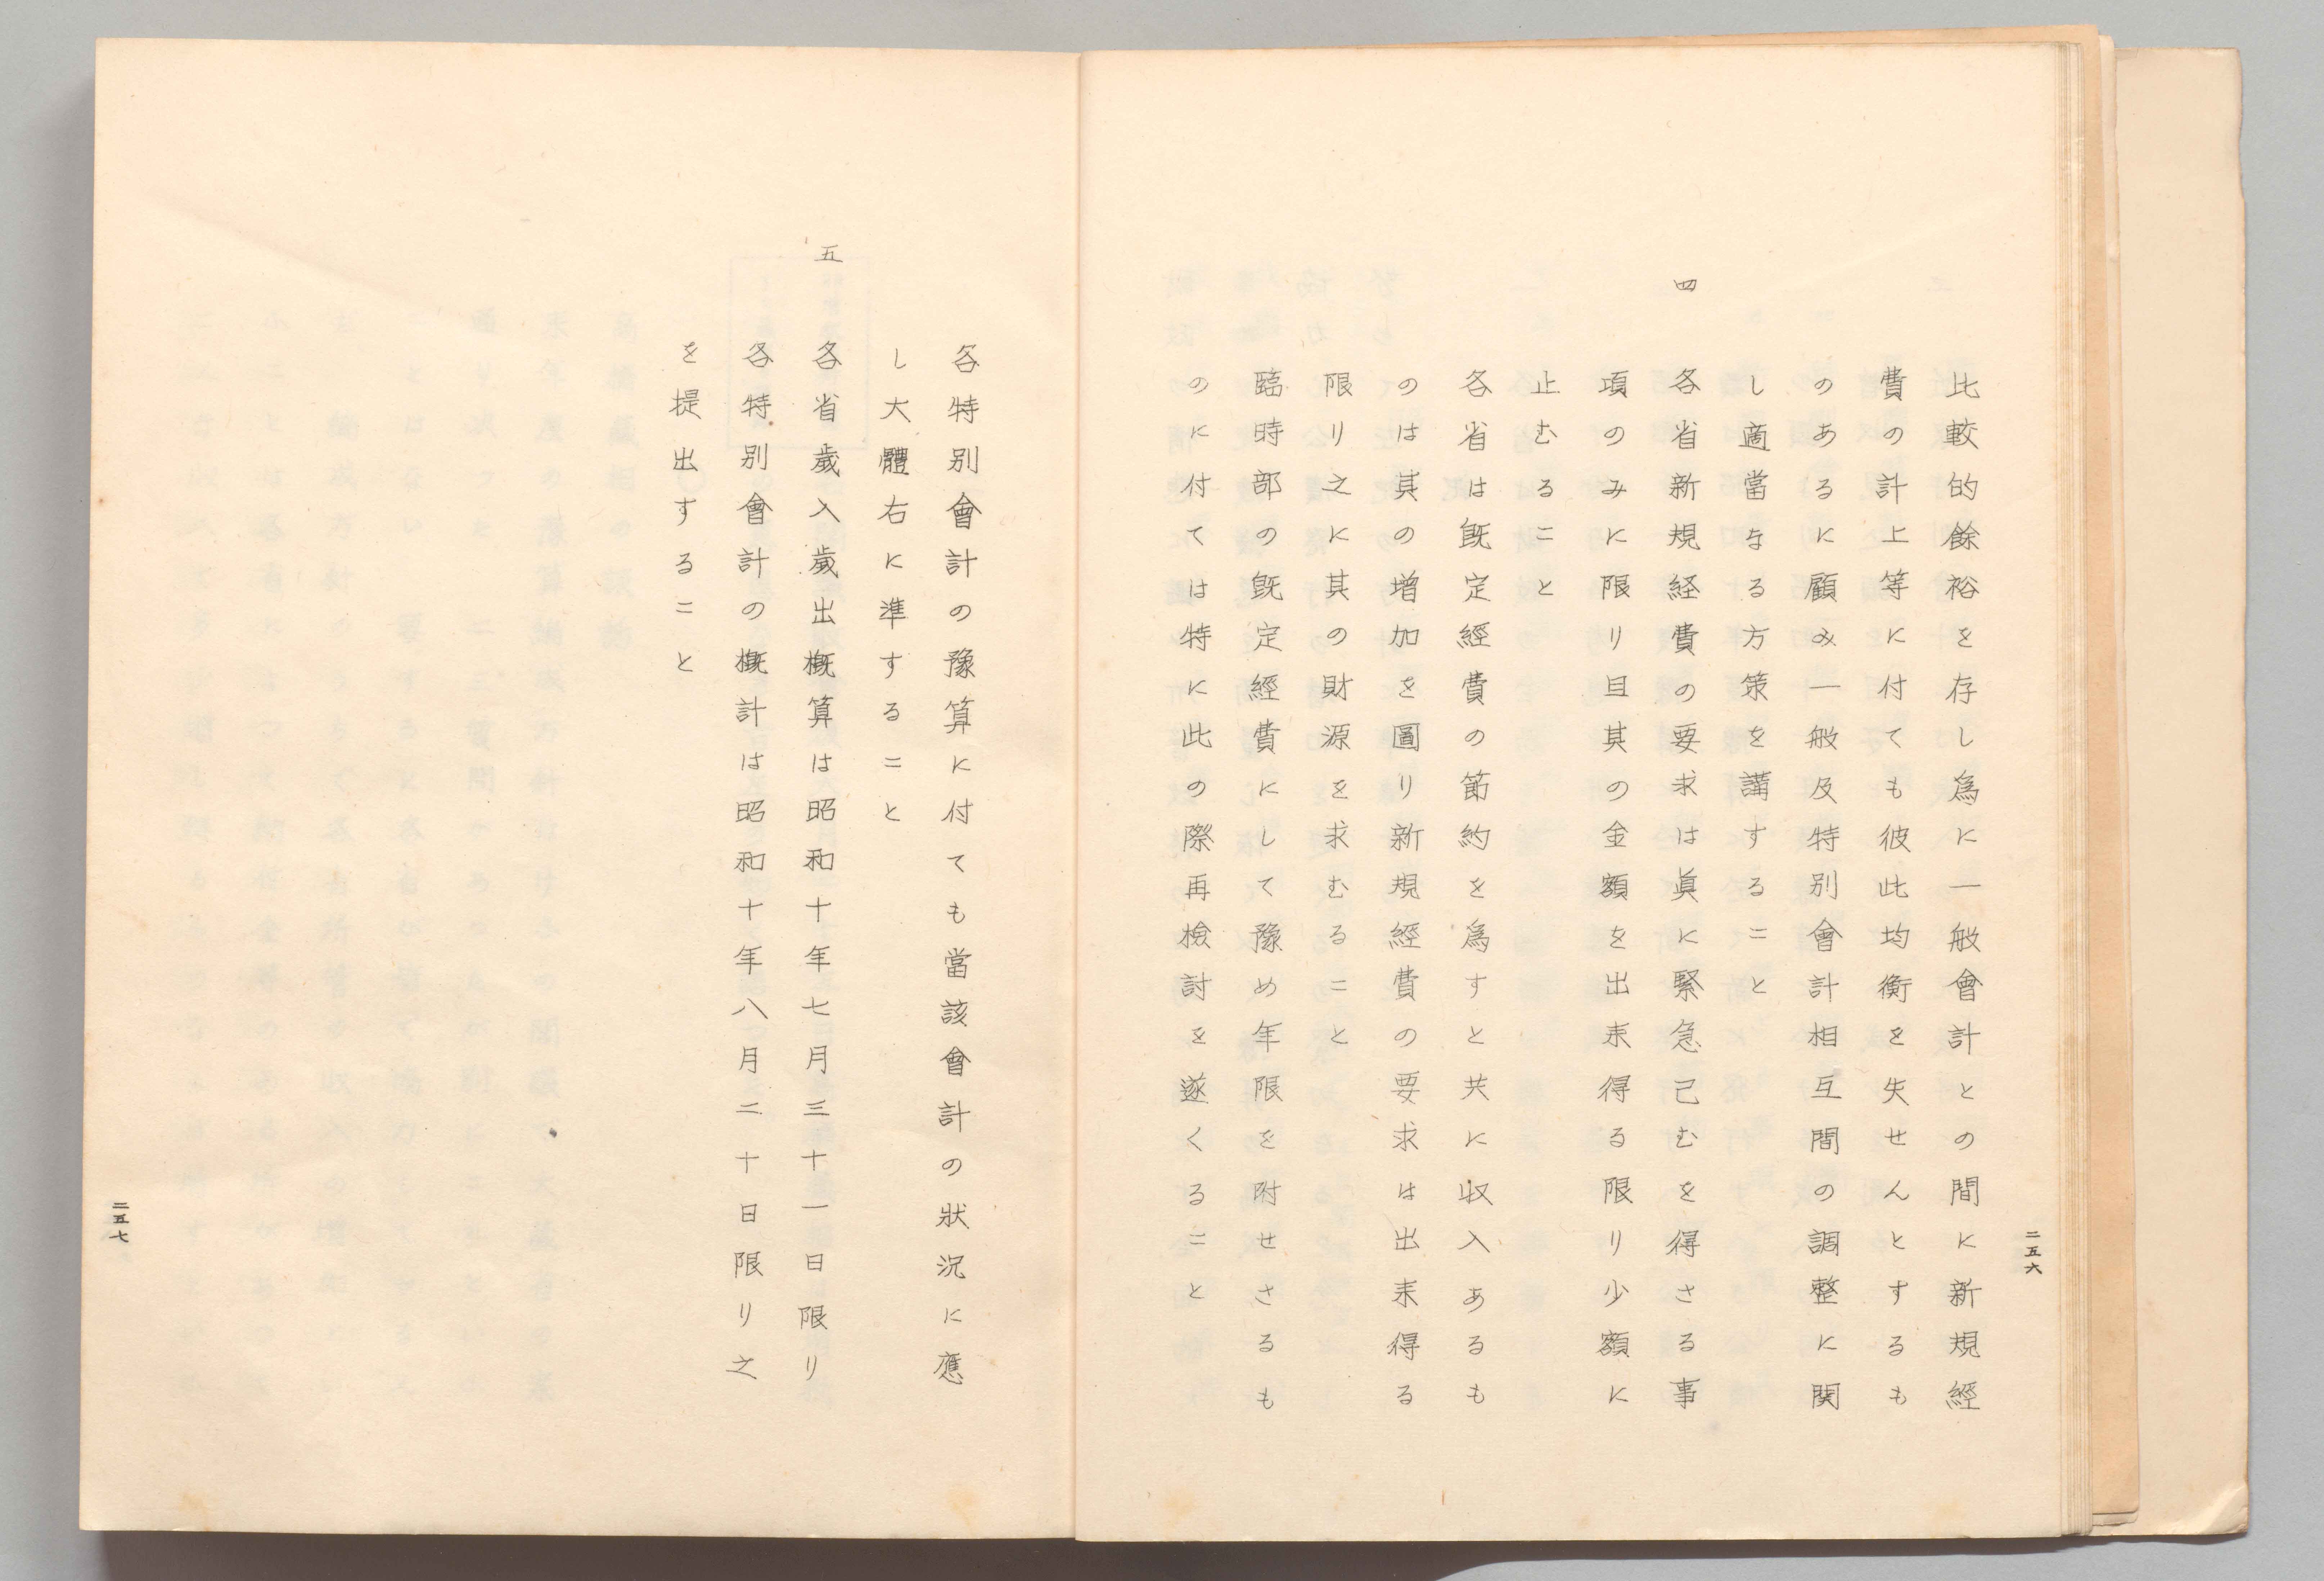 比較的餘裕を存し爲に一般會計との間に新規經
費の計上等に付ても彼此均衡を失せんとするも
のあるに顧み一般及特別會計相互間の調整に関
し適當なる方策を講すること
四　各省新規経費の要求は眞に緊急己むを得さる事
項のみに限り且其の金額を出来得る限り少額に
止むること
各省は既定經費の節約を爲すと共に収入あるも
のは其の増加を圖り新規經費の要求は出来得る
限り之に其の財源を求むること
臨時部の既定經費にして豫め年限を附せさるも
のに付ては特に此の際再檢討を遂くること
二五六
各特別會計の豫算に付ても當該會計の狀況に應
し大體右に準すること
五　各省歲入歲出概算は昭和十年七月三十一日限り
各特別會計の概計は昭和十年八月二十日限り之
を提出すること
二五七